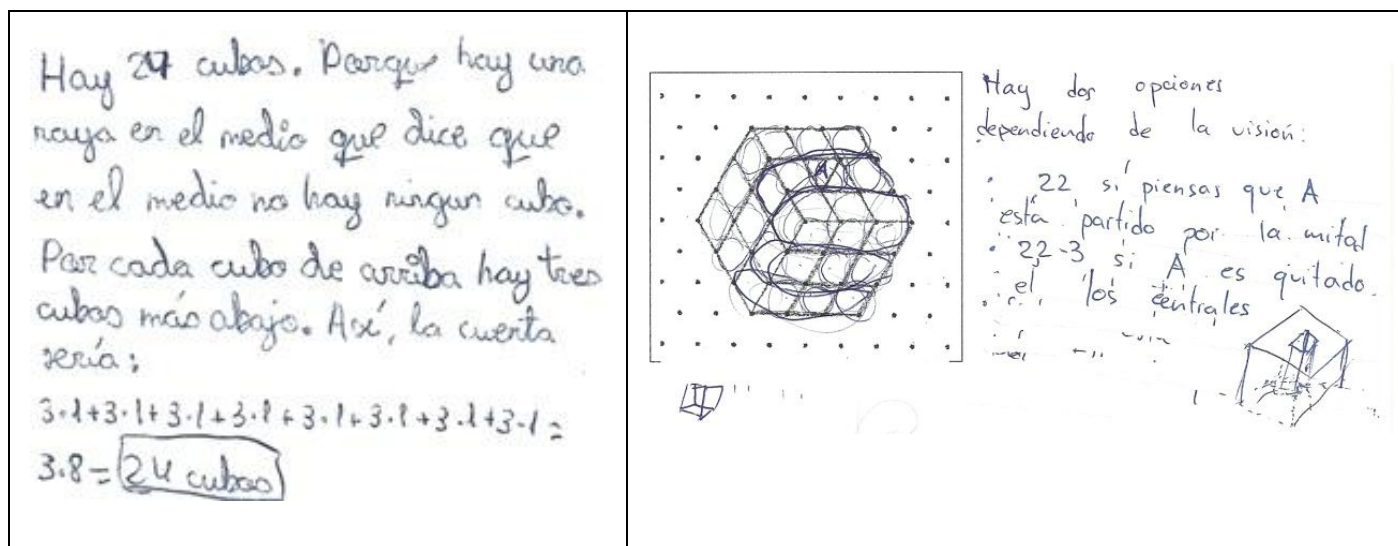 Hay 24 cubos. Porque hay una
raya en el medio que dice que
en el medio no hay ningun cubo.
Por cada cubo de arriba hay tres
cubos más abajo. Así, la cuenta
sería:
3·1+3·1+3·1+3·1+3·1+3·1+3·1+3·1=
3·8= 24 cubos
Hay dos opciones
dependiendo de la visión:
· 22 si piensas que A
está partido por la mitad
· 22-3 si A es quitado.
el los centrales
A